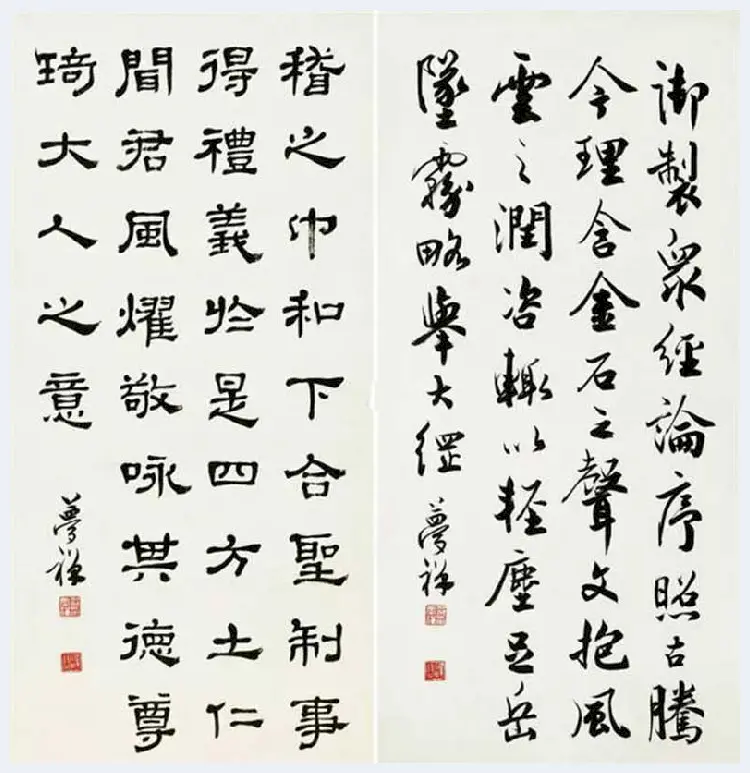 御製眾經論序照古騰
今理含金石之聲文抱風
雲之潤治輒以輕塵足岳
墜霧略舉大綱
夢禪
稽之中和下合聖制事
得禮義於是四方土仁
聞君風燿敬咏其德尊
琦大人之意
夢禪